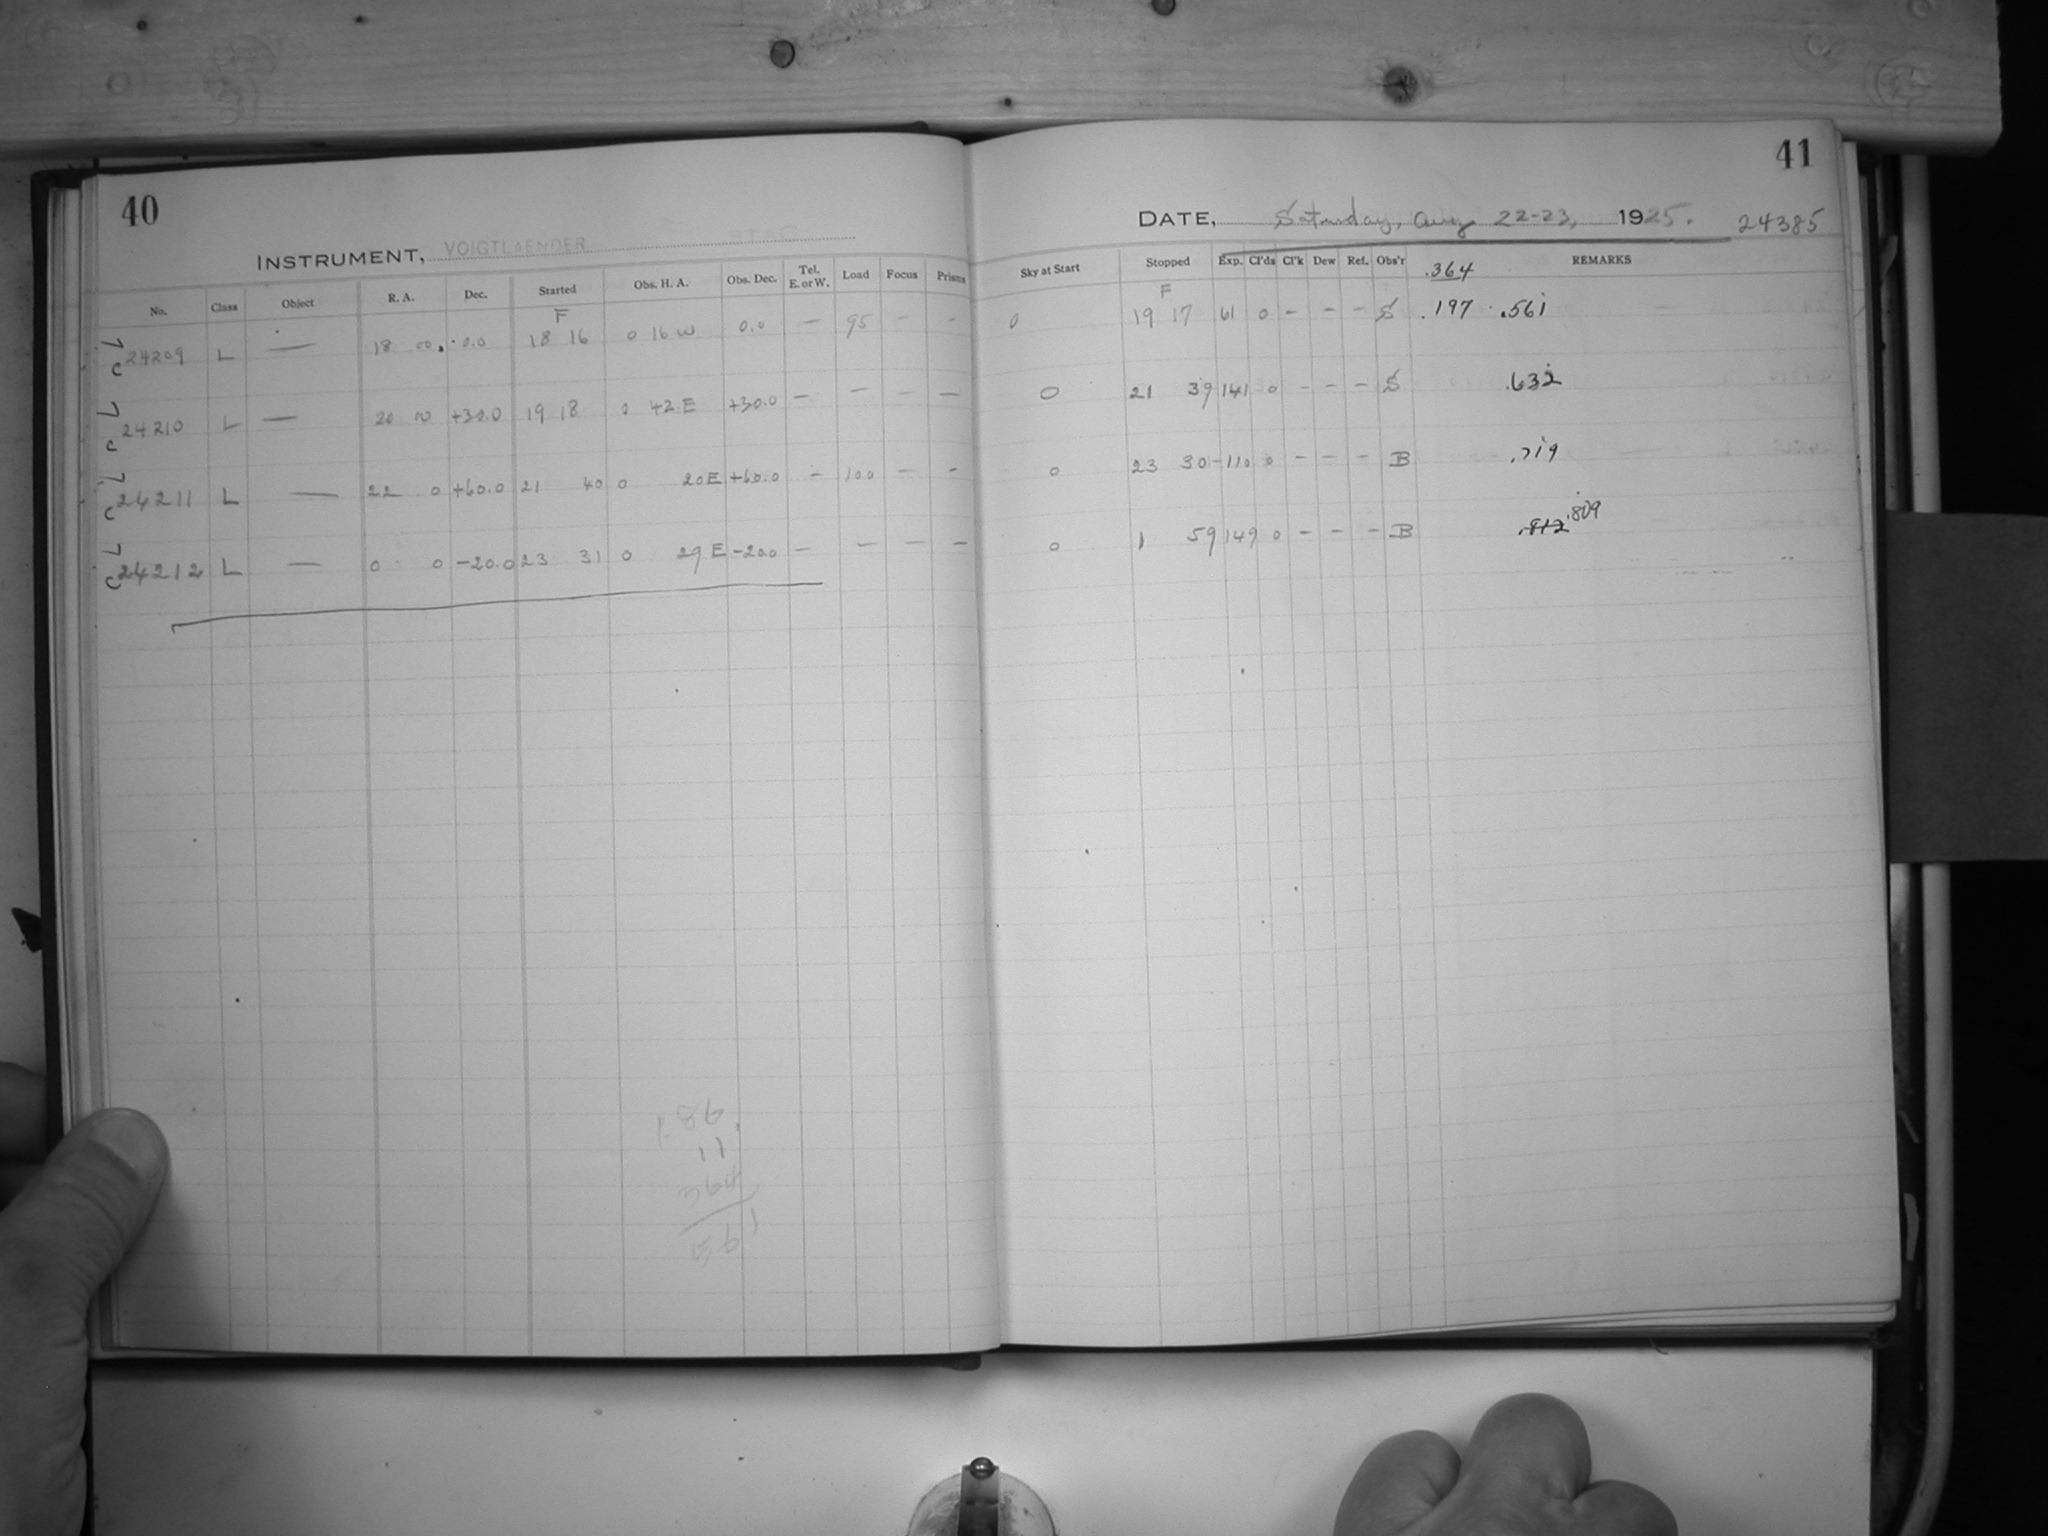 40
INSTRUMENT, VOIGTLAENDER
No. Class Object R. A. Dec. Started Obs. H. A. Obs. Dec. Tel. E. or W. Load Focus Prisms
F
7 c 24209 L — 18 00. 0.0 18 16 0 16 W 0.0 — 95 - -
7 c 24210 L — 20 00 +30.0 19 18 0 42 E +30.0 — — — —
7 c 24211 L — 22 0 +60.0 21 40 0 20 E +60.0 — 100 — -
7 c 24212 L — 0 0 -20.0 23 31 0 29 E -20.0 — — — —
41
DATE, Saturday, Aug 22-23, 1925. 24385
Sky at Start Stopped Exp. Cl'ds Cl'k Dew Ref. Obs'r .364 REMARKS
F
0 19 17 61 0 - - - S .197 .561
0 21 39 141 0 - - - S .632
0 23 30 -110 0 - - - B .719
0 1 59 149 0 - - - B .812 .809